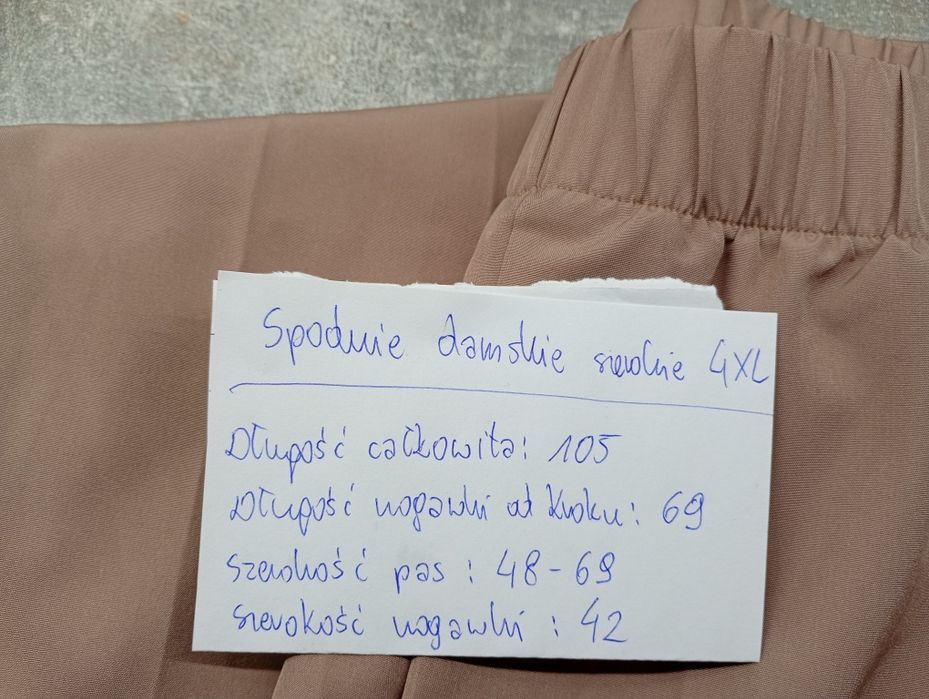 Spodnie damskie szerokie 4XL
Długość całkowita: 105
Długość nogawki od kroku: 69
szerokość pas: 48-69
szerokość nogawki: 42